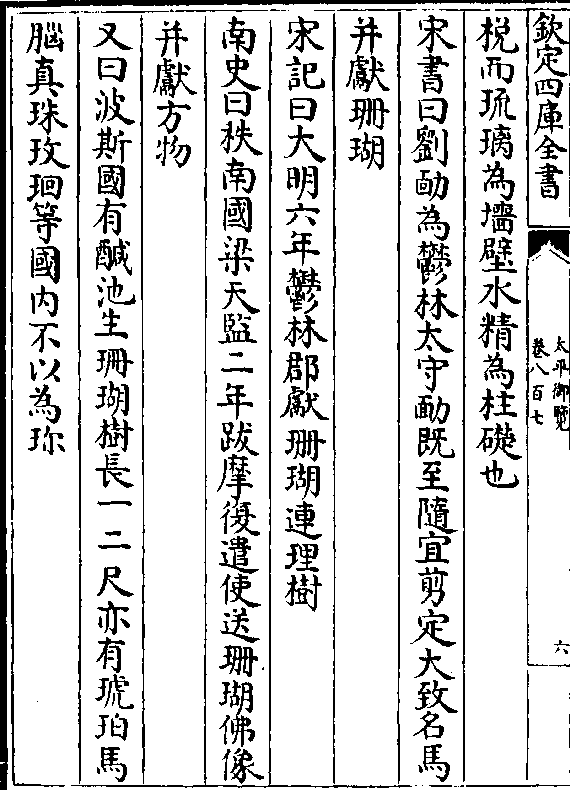 欽定四庫全書
太平御覽
卷八百七
六
棁而琉璃為墻壁水精為柱礎也
宋書曰劉勔為鬱林太守勔既至隨宜剪定大致名馬
并獻珊瑚
宋記曰大明六年鬱林郡獻珊瑚連理樹
南史曰秩南國梁天監二年跋摩復遣使送珊瑚佛像
并獻方物
又曰波斯國有鹹池生珊瑚樹長一二尺亦有琥珀馬
腦真珠玫珻等國内不以為珎